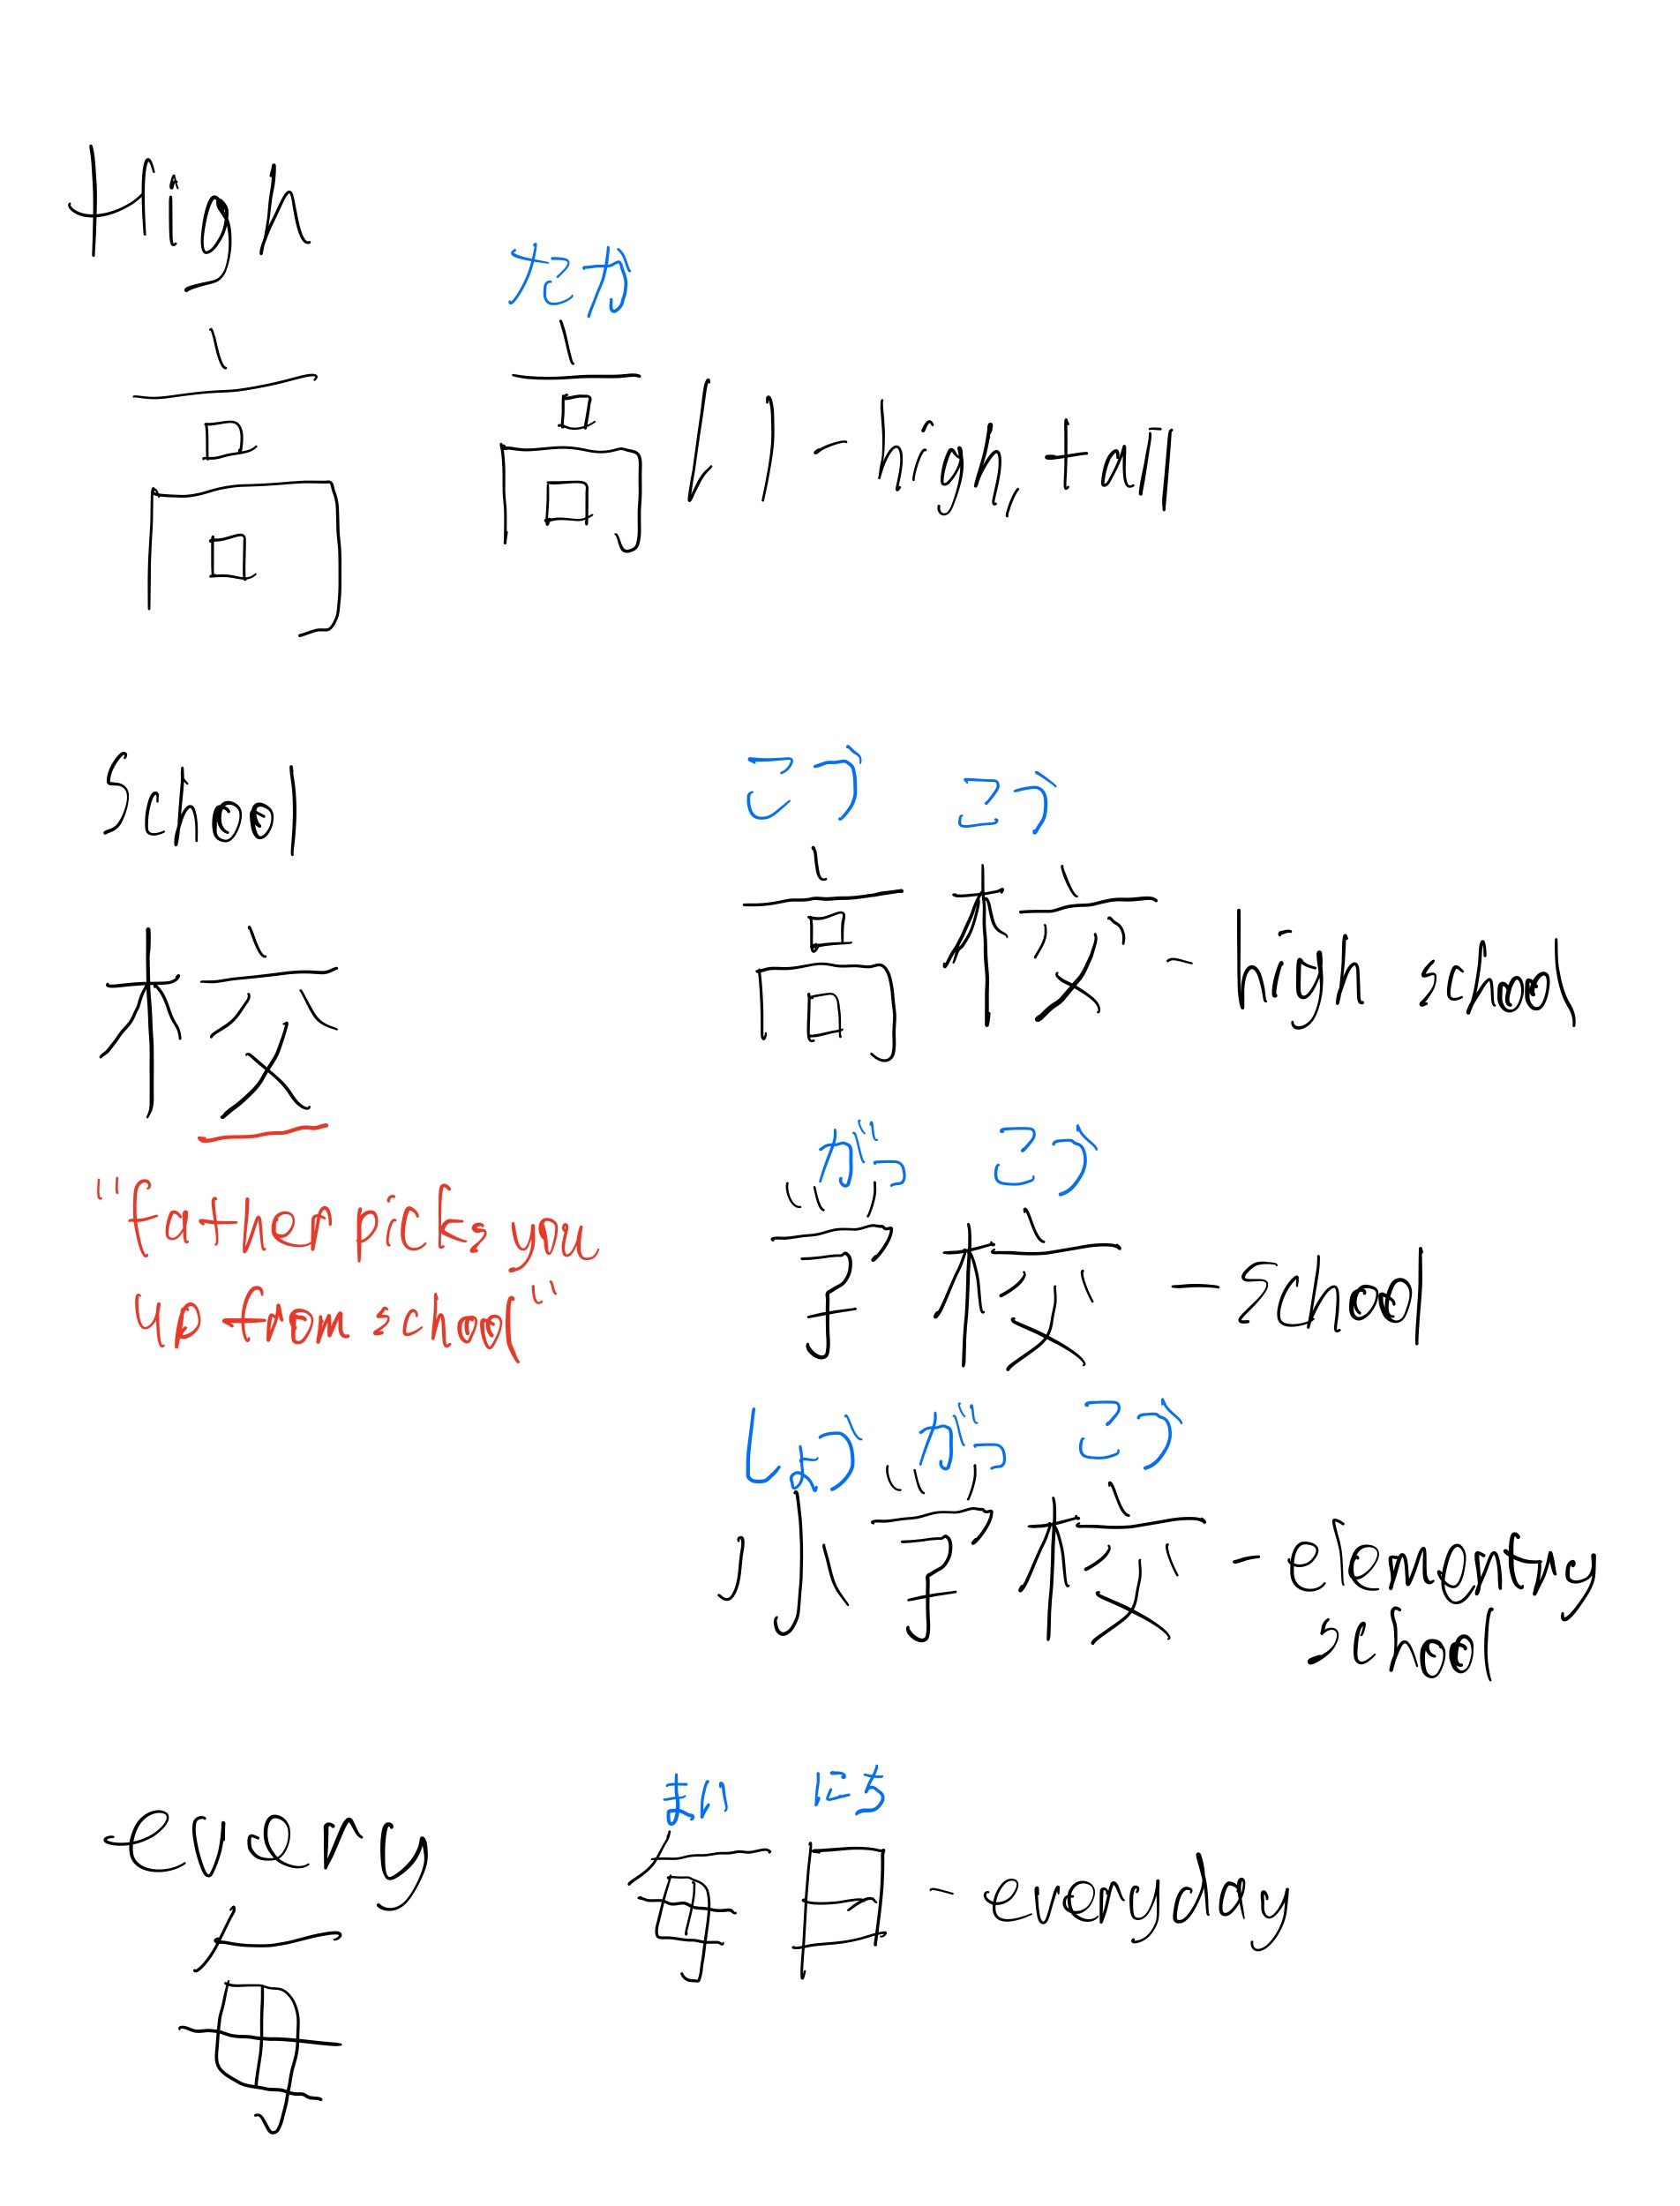 High
高
たか
高い - high, tall
School
校
"father picks you
up from school"
こう こう
高校 - high school
がっ こう
学校 - school
しょう がっ こう
小学校 - elementry
school
every
毎
まい にち
毎日 - everyday